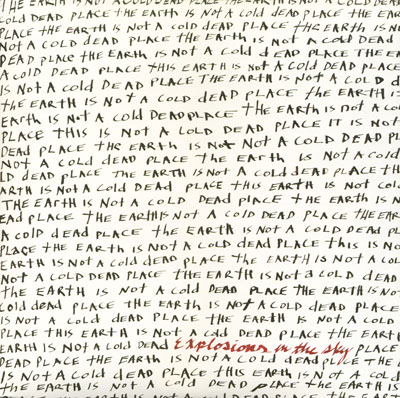 THE EARTH IS NOT A COLD DEAD PLACE THE EARTH IS NOT A COLD DEAD
EARTH IS NOT A COLD DEAD PLACE THE EARTH IS NOT A COLD DEAD PLACE THE EAR
PLACE THE EARTH IS NOT A COLD DEAD PLACE THE EARTH IS NOT
NOT A COLD DEAD PLACE THE EARTH IS NOT A COLD DEAD
DEAD PLACE THE EARTH IS NOT A COLD dEAD PLACE THE EA
A COLD DEAD PLACE THIS EARTH IS NOT A COLD DEAD PLACE
IS NOT A Cold DEAD PLACE THE EARTH IS NOT A COLD D
THE EARTH IS NOT A COLD dEAD PLACE the EARTH IS
EARTH IS NOT A COLD DEAD PLACE THE EARTH IS NOT A CO
PLACE THIS IS NOT A COLD DEAD PLACE IT IS NOT
DEAD PLACE THE EARTH IS NOT A COLD DEAD P
NOT A COLD dEAD PLACE the EARTH IS NOT A COLD
LD DEAD PLACE THE EARTH IS NOT A COLD DEAD PLACE TH
ARTH IS NOT A COLD DEAD PLACE THIS EARTH IS NOT COL
THE EARTH IS NOT A COLD DEAD PLACE tHE EARTH IS N
EAD PLACE tHE EARTH IS NOT A COLD DEAD PLACE THE EAR
A COLD DEAD PLACE tHE EARTH IS NOT A COLD DEAD PLA
PLACE THE EARTH IS NOT A COLD DEAD PLACE this IS NO
EARTH IS NOT A COLD DEAD PLACE THE EARTH IS NOT A COLD
NOT A COLD DEAD PLACE THE EARTH IS NOT A COLD DEAD
tHE EARTH IS NOT A COLD DEAD PLACE THE EARTH IS NO
Cold dEAD PLACE THE EARTH IS NOT A COLD DEAD PLACE
IS NOT A COLD DEAD PLACE THE EARTH IS NOT A COLD
PLACE THIS EARTH IS NOT A COLD DEAD PLACE THE EARTH
EARTH IS NOT A COLD DEAD Explosions in the sky PLACE
DEAD PLACE THE EARTH IS NOT A COLD DEAD PLACE THE EA
IS NOT A COLD DEAD PLACE THE EARTH IS NOT A COLD
tHE EARTH IS NOT A COLD DEAD PLACE tHE EARTH IS NOT